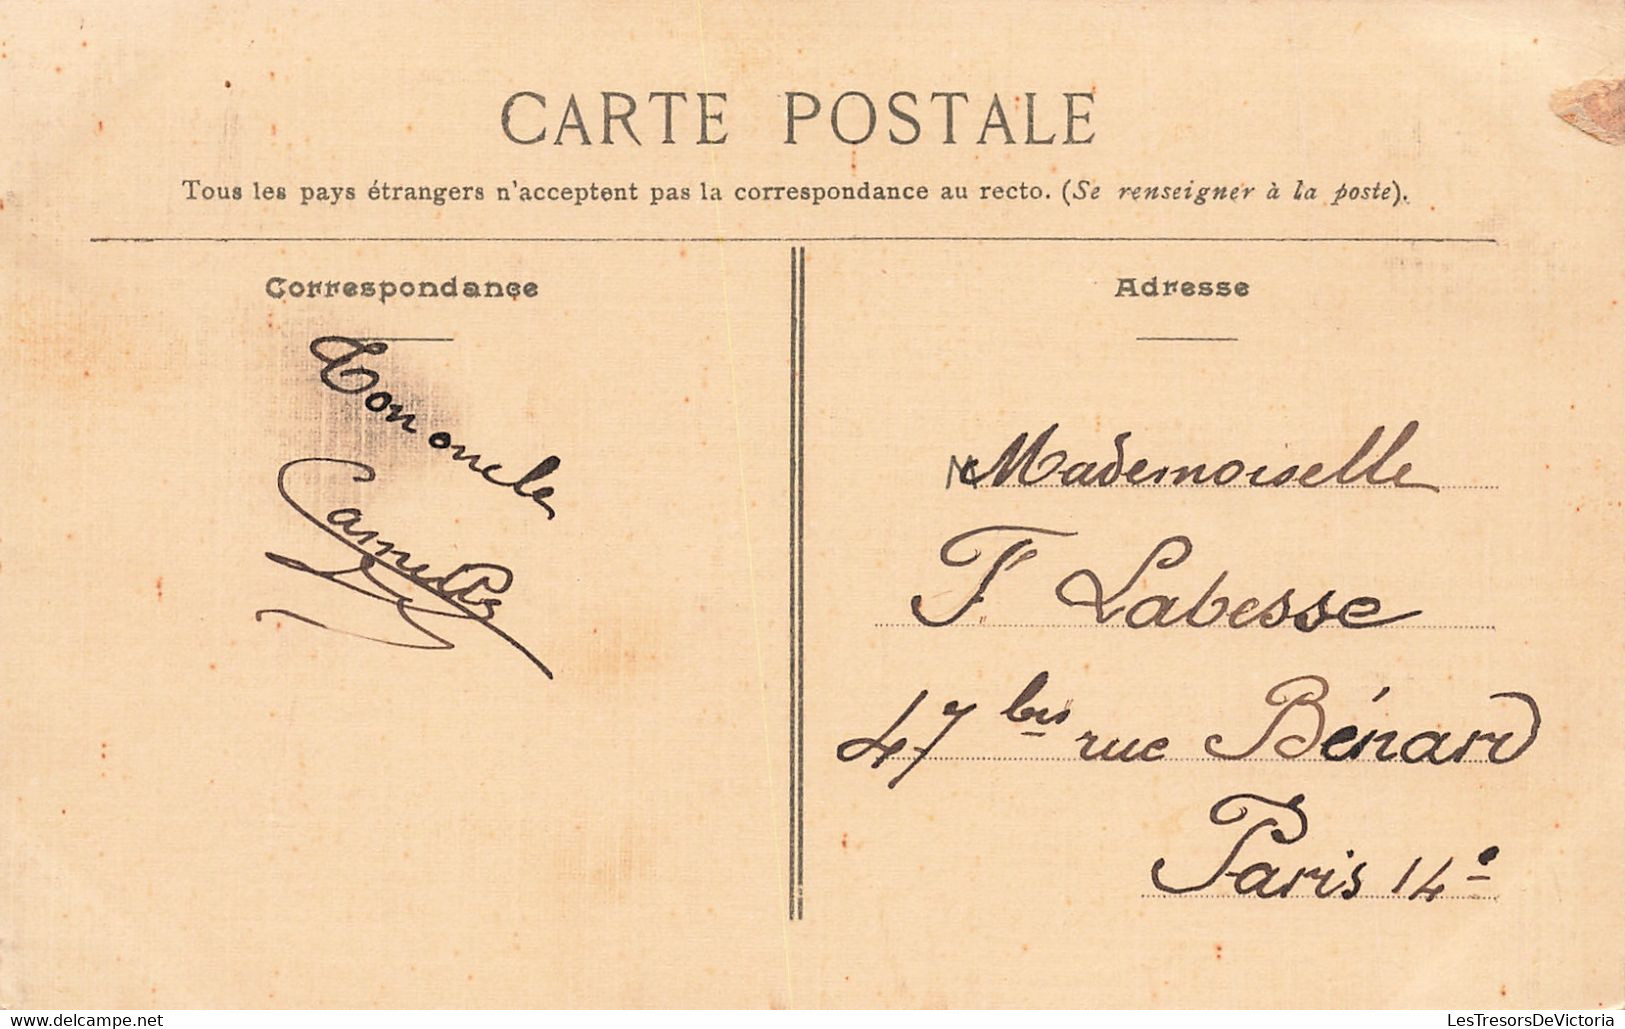 CARTE POSTALE
Tous les pays étrangers n'acceptent pas la correspondance au recto. (Se renseigner à la poste).
Correspondance
Ton oncle
Adresse
Mademoiselle
F. Labesse
47 bis rue Bénard
Paris 14e
LesTresorsDeVictoria
www.delcampe.net